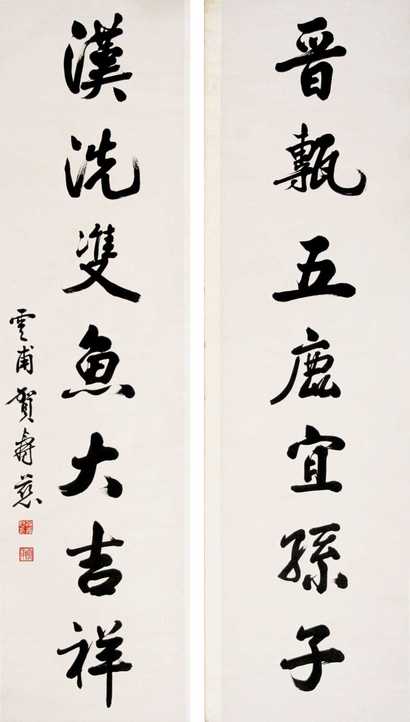 晋甎五鹿宜孫子
漢洗雙魚大吉祥
雲甫賀壽慈